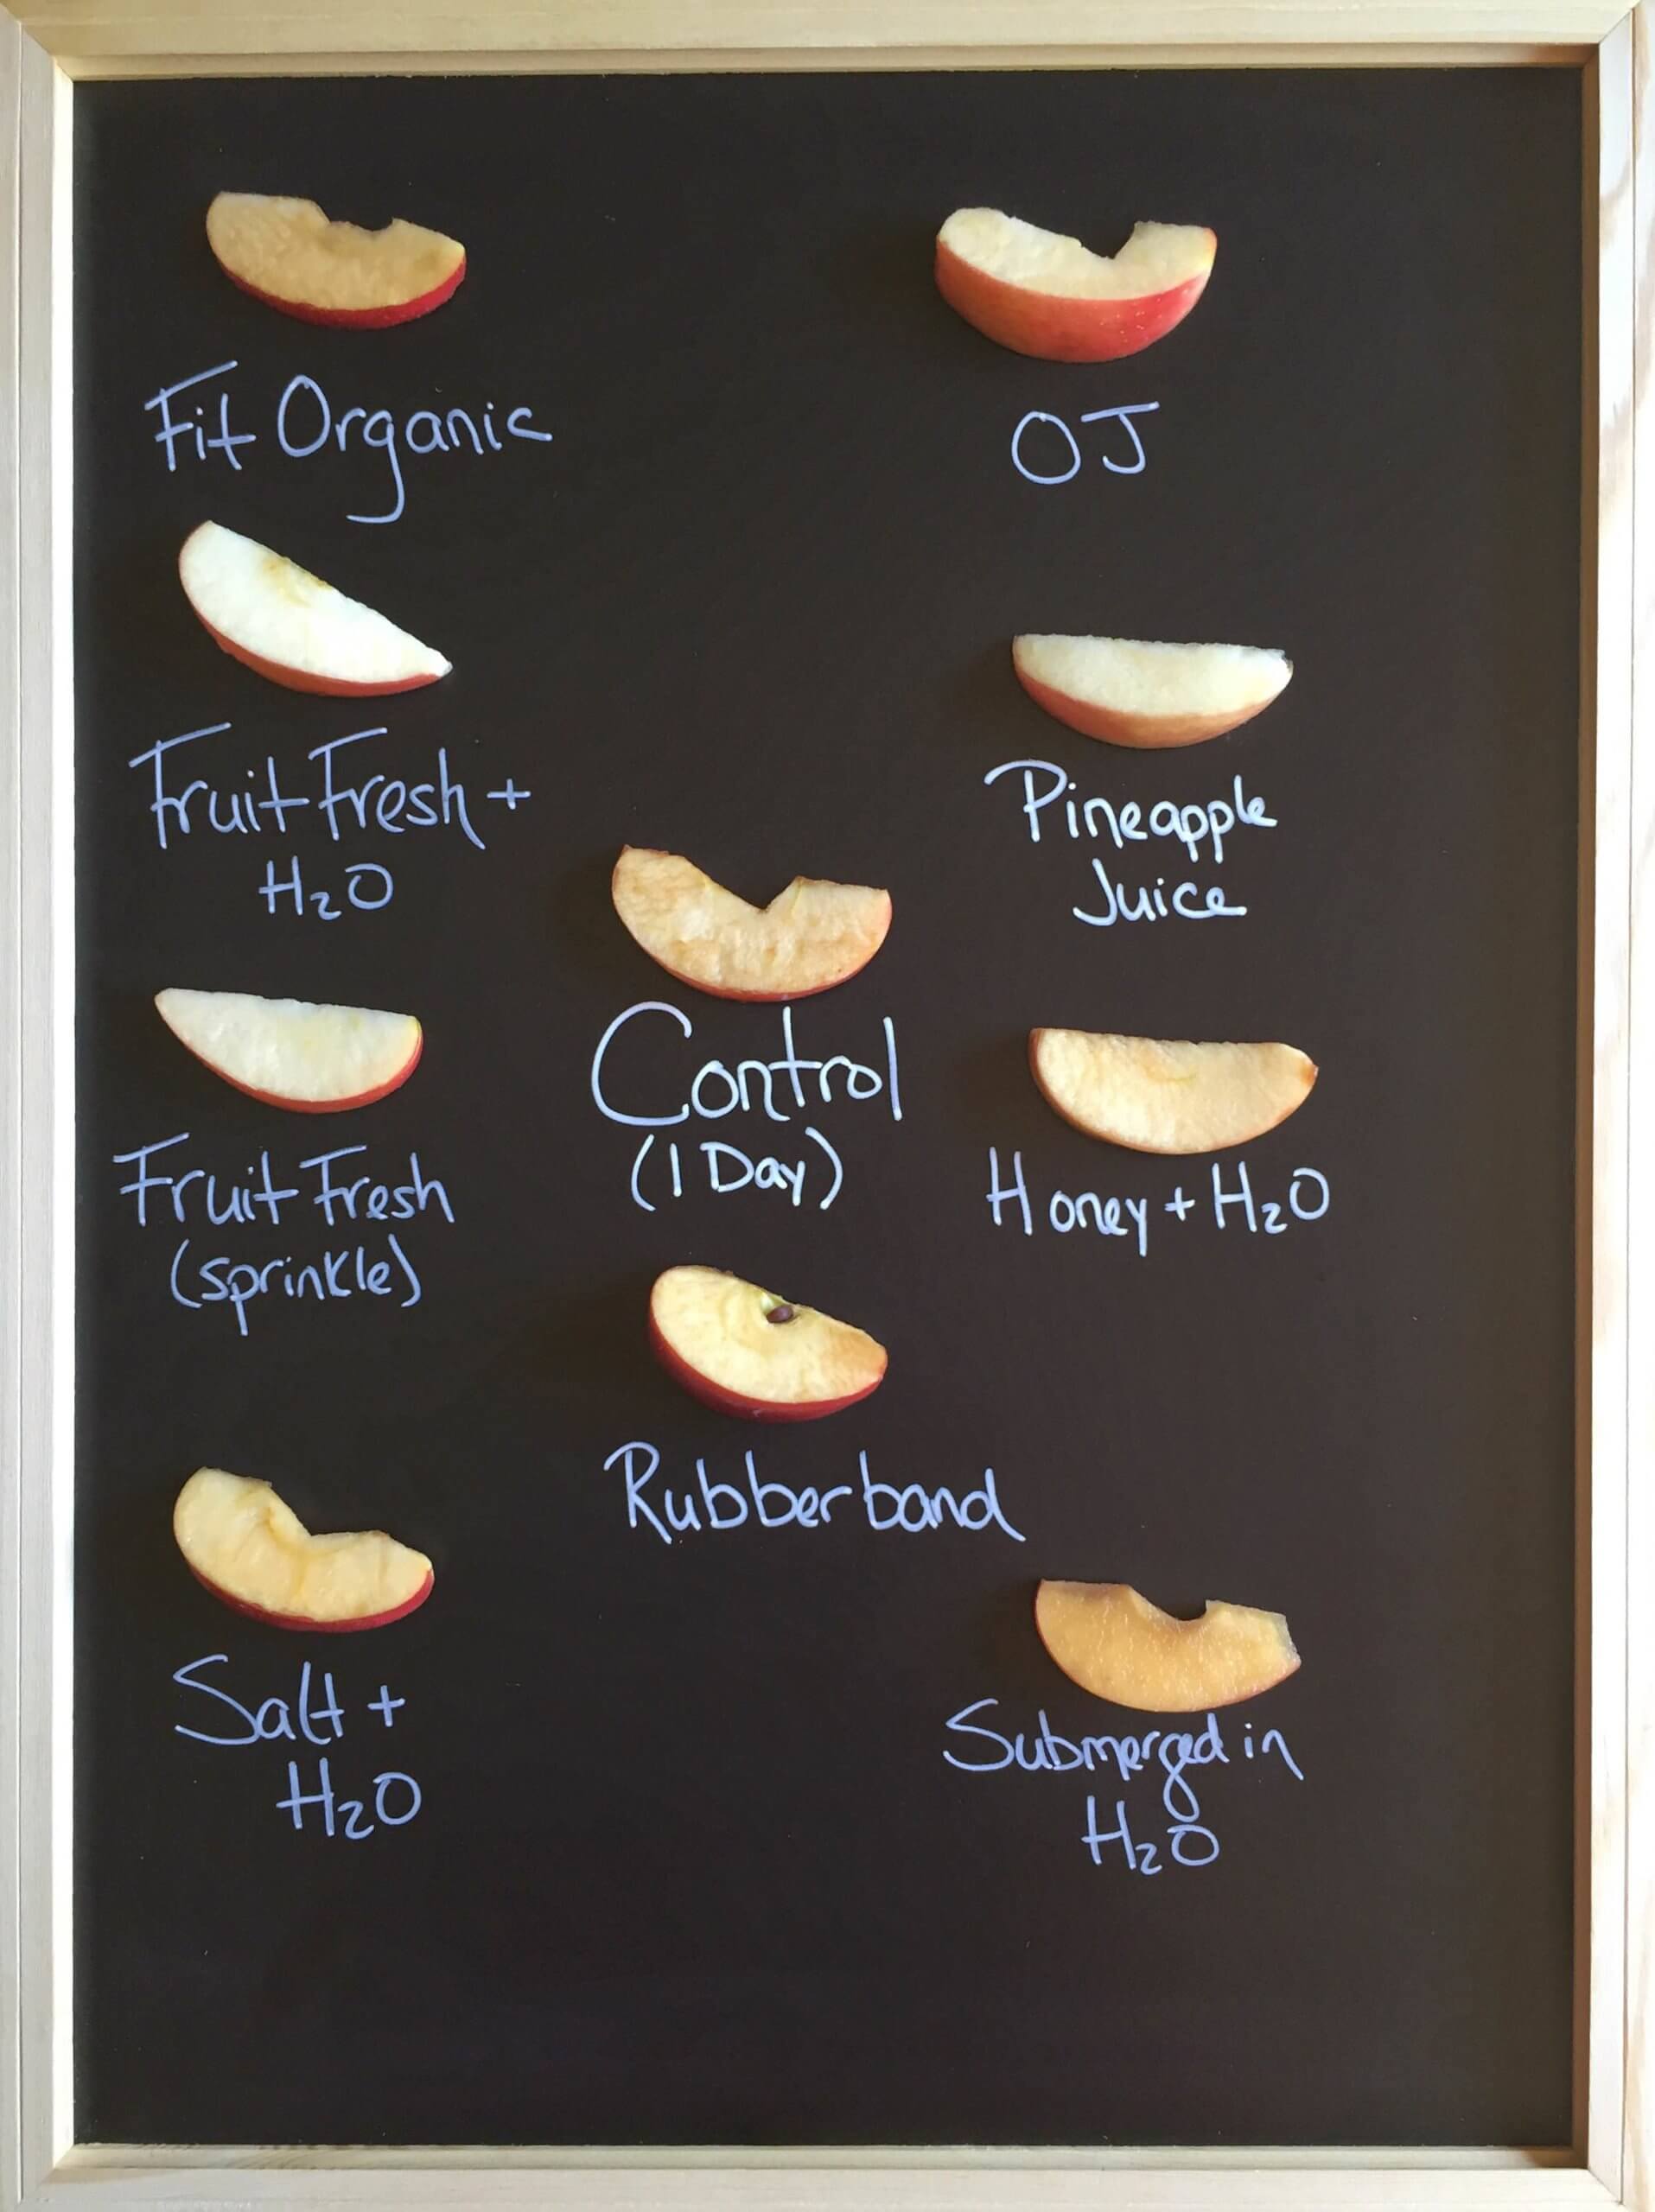 Fit Organic
OJ
Fruit Fresh +
H₂O
Pineapple
Juice
Control
(1 Day)
Fruit Fresh
(sprinkle)
Honey + H₂O
Rubberband
Salt +
H₂O
Submerged in
H₂O